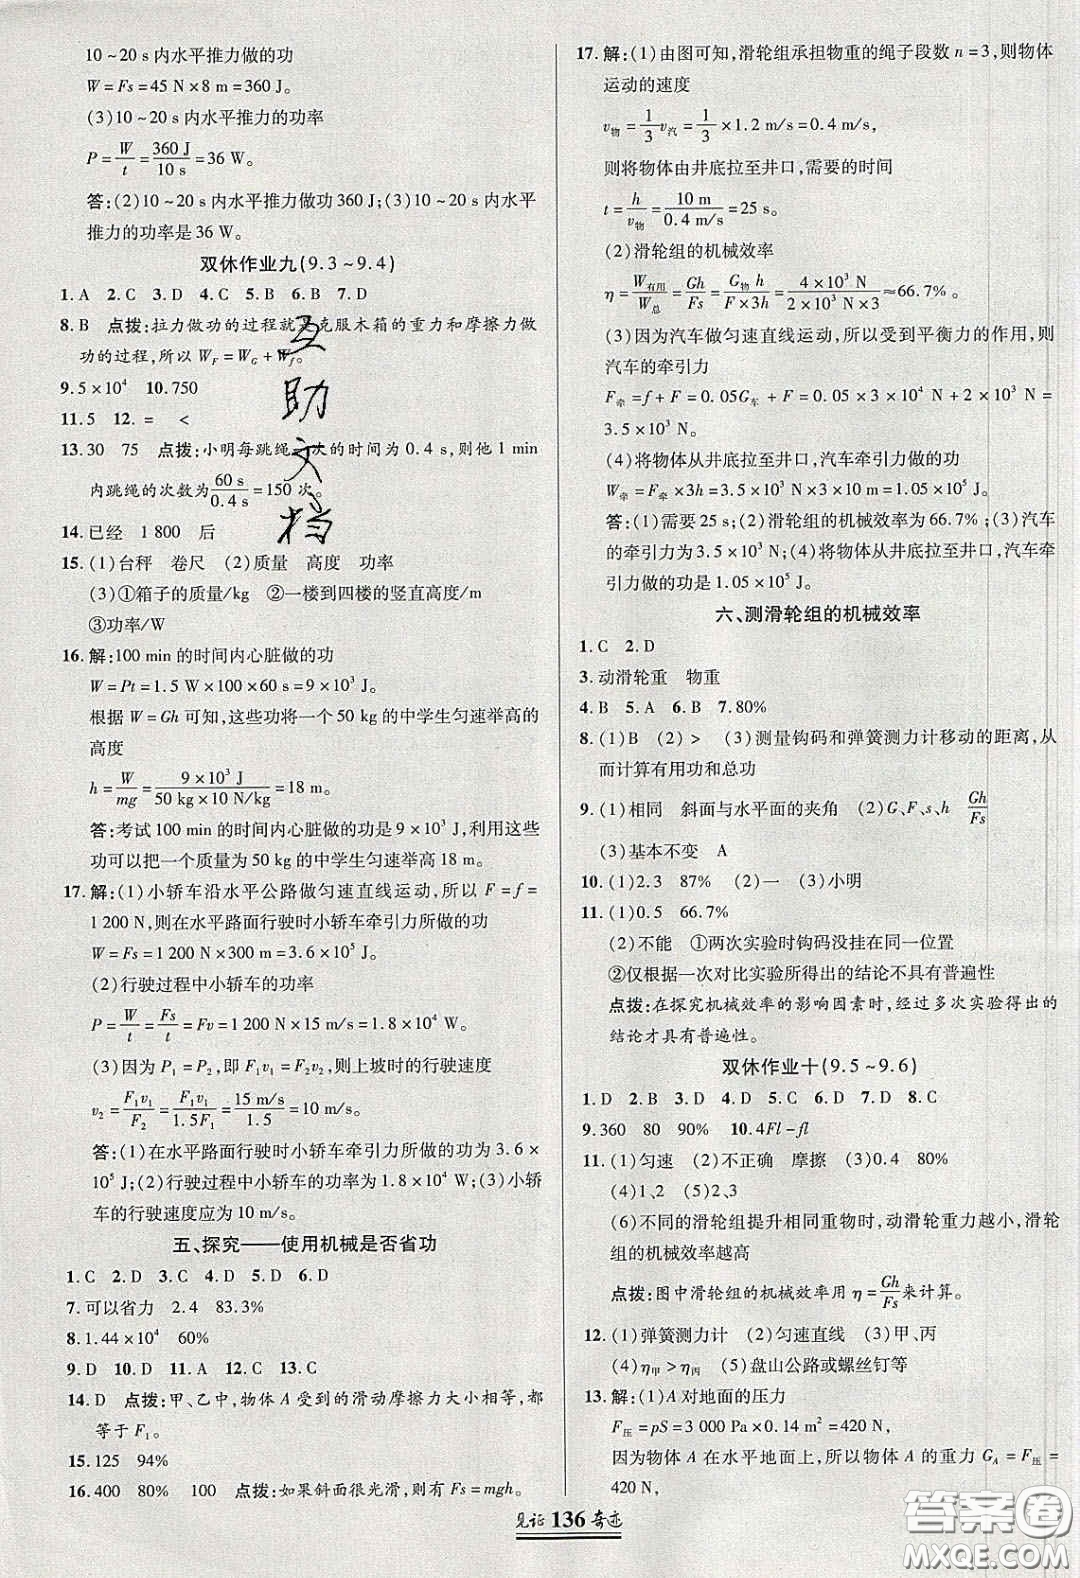 10~20 s内水平推力做的功
W=Fs=45 N×8 m=360 J。
(3)10~20 s内水平推力的功率
P=W/t=360 J/10 s=36 W。
答:(2)10~20 s内水平推力做功360 J;(3)10~20 s内水平
推力的功率是36 W。
双休作业九(9.3~9.4)
1.A 2.C 3.D 4.C 5.B 6.B 7.D
8.B 点拨:拉力做功的过程就 克服木箱的重力和摩擦力做
功的过程,所以W_F=W_G+W_f。
9.5×10⁴ 10.750
11.5 12.= <
13.30 75 点拨:小明每跳绳 次的时间为0.4 s,则他1 min
内跳绳的次数为60 s/0.4 s=150次。
14.已经 1 800 后
15.(1)台秤 卷尺 (2)质量 高度 功率
(3)①箱子的质量/kg ②一楼到四楼的竖直高度/m
③功率/W
16.解:100 min的时间内心脏做的功
W=Pt=1.5 W×100×60 s=9×10³ J。
根据W=Gh可知,这些功将一个50 kg的中学生匀速举高的
高度
h=W/mg=9×10³ J/50 kg×10 N/kg=18 m。
答:考试100 min的时间内心脏做的功是9×10³ J,利用这些
功可以把一个质量为50 kg的中学生匀速举高18 m。
17.解:(1)小轿车沿水平公路做匀速直线运动,所以F=f=
1 200 N,则在水平路面行驶时小轿车牵引力所做的功
W=Fs=1 200 N×300 m=3.6×10⁵ J。
(2)行驶过程中小轿车的功率
P=W/t=Fs/t=Fv=1 200 N×15 m/s=1.8×10⁴ W。
(3)因为P₁=P₂,即F₁v₁=F₂v₂,则上坡时的行驶速度
v₂=F₁v₁/F₂=F₁v₁/1.5F₁=15 m/s/1.5=10 m/s。
答:(1)在水平路面行驶时小轿车牵引力所做的功为3.6×
10⁵ J;(2)行驶过程中小轿车的功率为1.8×10⁴ W;(3)小轿
车的行驶速度应为10 m/s。
五、探究——使用机械是否省功
1.C 2.D 3.C 4.D 5.D 6.D
7.可以省力 2.4 83.3%
8.1.44×10⁴ 60%
9.D 10.D 11.A 12.C 13.C
14.D 点拨:甲、乙中,物体A受到的滑动摩擦力大小相等,都
等于F₁。
15.125 94%
16.400 80% 100 点拨:如果斜面很光滑,则有Fs=mgh。
17.解:(1)由图可知,滑轮组承担物重的绳子段数n=3,则物体
运动的速度
v物=1/3v汽=1/3×1.2 m/s=0.4 m/s,
则将物体由井底拉至井口,需要的时间
t=h/v物=10 m/0.4 m/s=25 s。
(2)滑轮组的机械效率
η=W有用/W总=Gh/Fs=G物h/F×3h=4×10³ N/2×10³ N×3≈66.7%。
(3)因为汽车做匀速直线运动,所以受到平衡力的作用,则
汽车的牵引力
F牵=f+F=0.05G车+F=0.05×3×10⁴ N+2×10³ N=
3.5×10³ N。
(4)将物体从井底拉至井口,汽车牵引力做的功
W牵=F牵×3h=3.5×10³ N×3×10 m=1.05×10⁵ J。
答:(1)需要25 s;(2)滑轮组的机械效率为66.7%;(3)汽车
的牵引力为3.5×10³ N;(4)将物体从井底拉至井口,汽车牵
引力做的功是1.05×10⁵ J。
六、测滑轮组的机械效率
1.C 2.D
3.动滑轮重 物重
4.B 5.A 6.B 7.80%
8.(1)B (2)> (3)测量钩码和弹簧测力计移动的距离,从
而计算有用功和总功
9.(1)相同 斜面与水平面的夹角 (2)G、F、s、h Gh/Fs
(3)基本不变 A
10.(1)2.3 87% (2)一 (3)小明
11.(1)0.5 66.7%
(2)不能 ①两次实验时钩码没挂在同一位置
②仅根据一次对比实验所得出的结论不具有普遍性
点拨:在探究机械效率的影响因素时,经过多次实验得出的
结论才具有普遍性。
双休作业十(9.5~9.6)
1.D 2.B 3.D 4.D 5.D 6.D 7.D 8.C
9.360 80 90% 10.4Fl-fl
11.(1)匀速 (2)不正确 摩擦 (3)0.4 80%
(4)1、2 (5)2、3
(6)不同的滑轮组提升相同重物时,动滑轮重力越小,滑轮
组的机械效率越高
点拨:图中滑轮组的机械效率用η=Gh/Fs来计算。
12.(1)弹簧测力计 (2)匀速直线 (3)甲、丙
(4)η甲>η丙 (5)盘山公路或螺丝钉等
13.解:(1)A对地面的压力
F压=pS=3 000 Pa×0.14 m²=420 N,
因为物体A在水平地面上,所以物体A的重力G_A=F压=
420 N,
见证136奇迹
互
助
文
档
答案圈
MXQE.COM